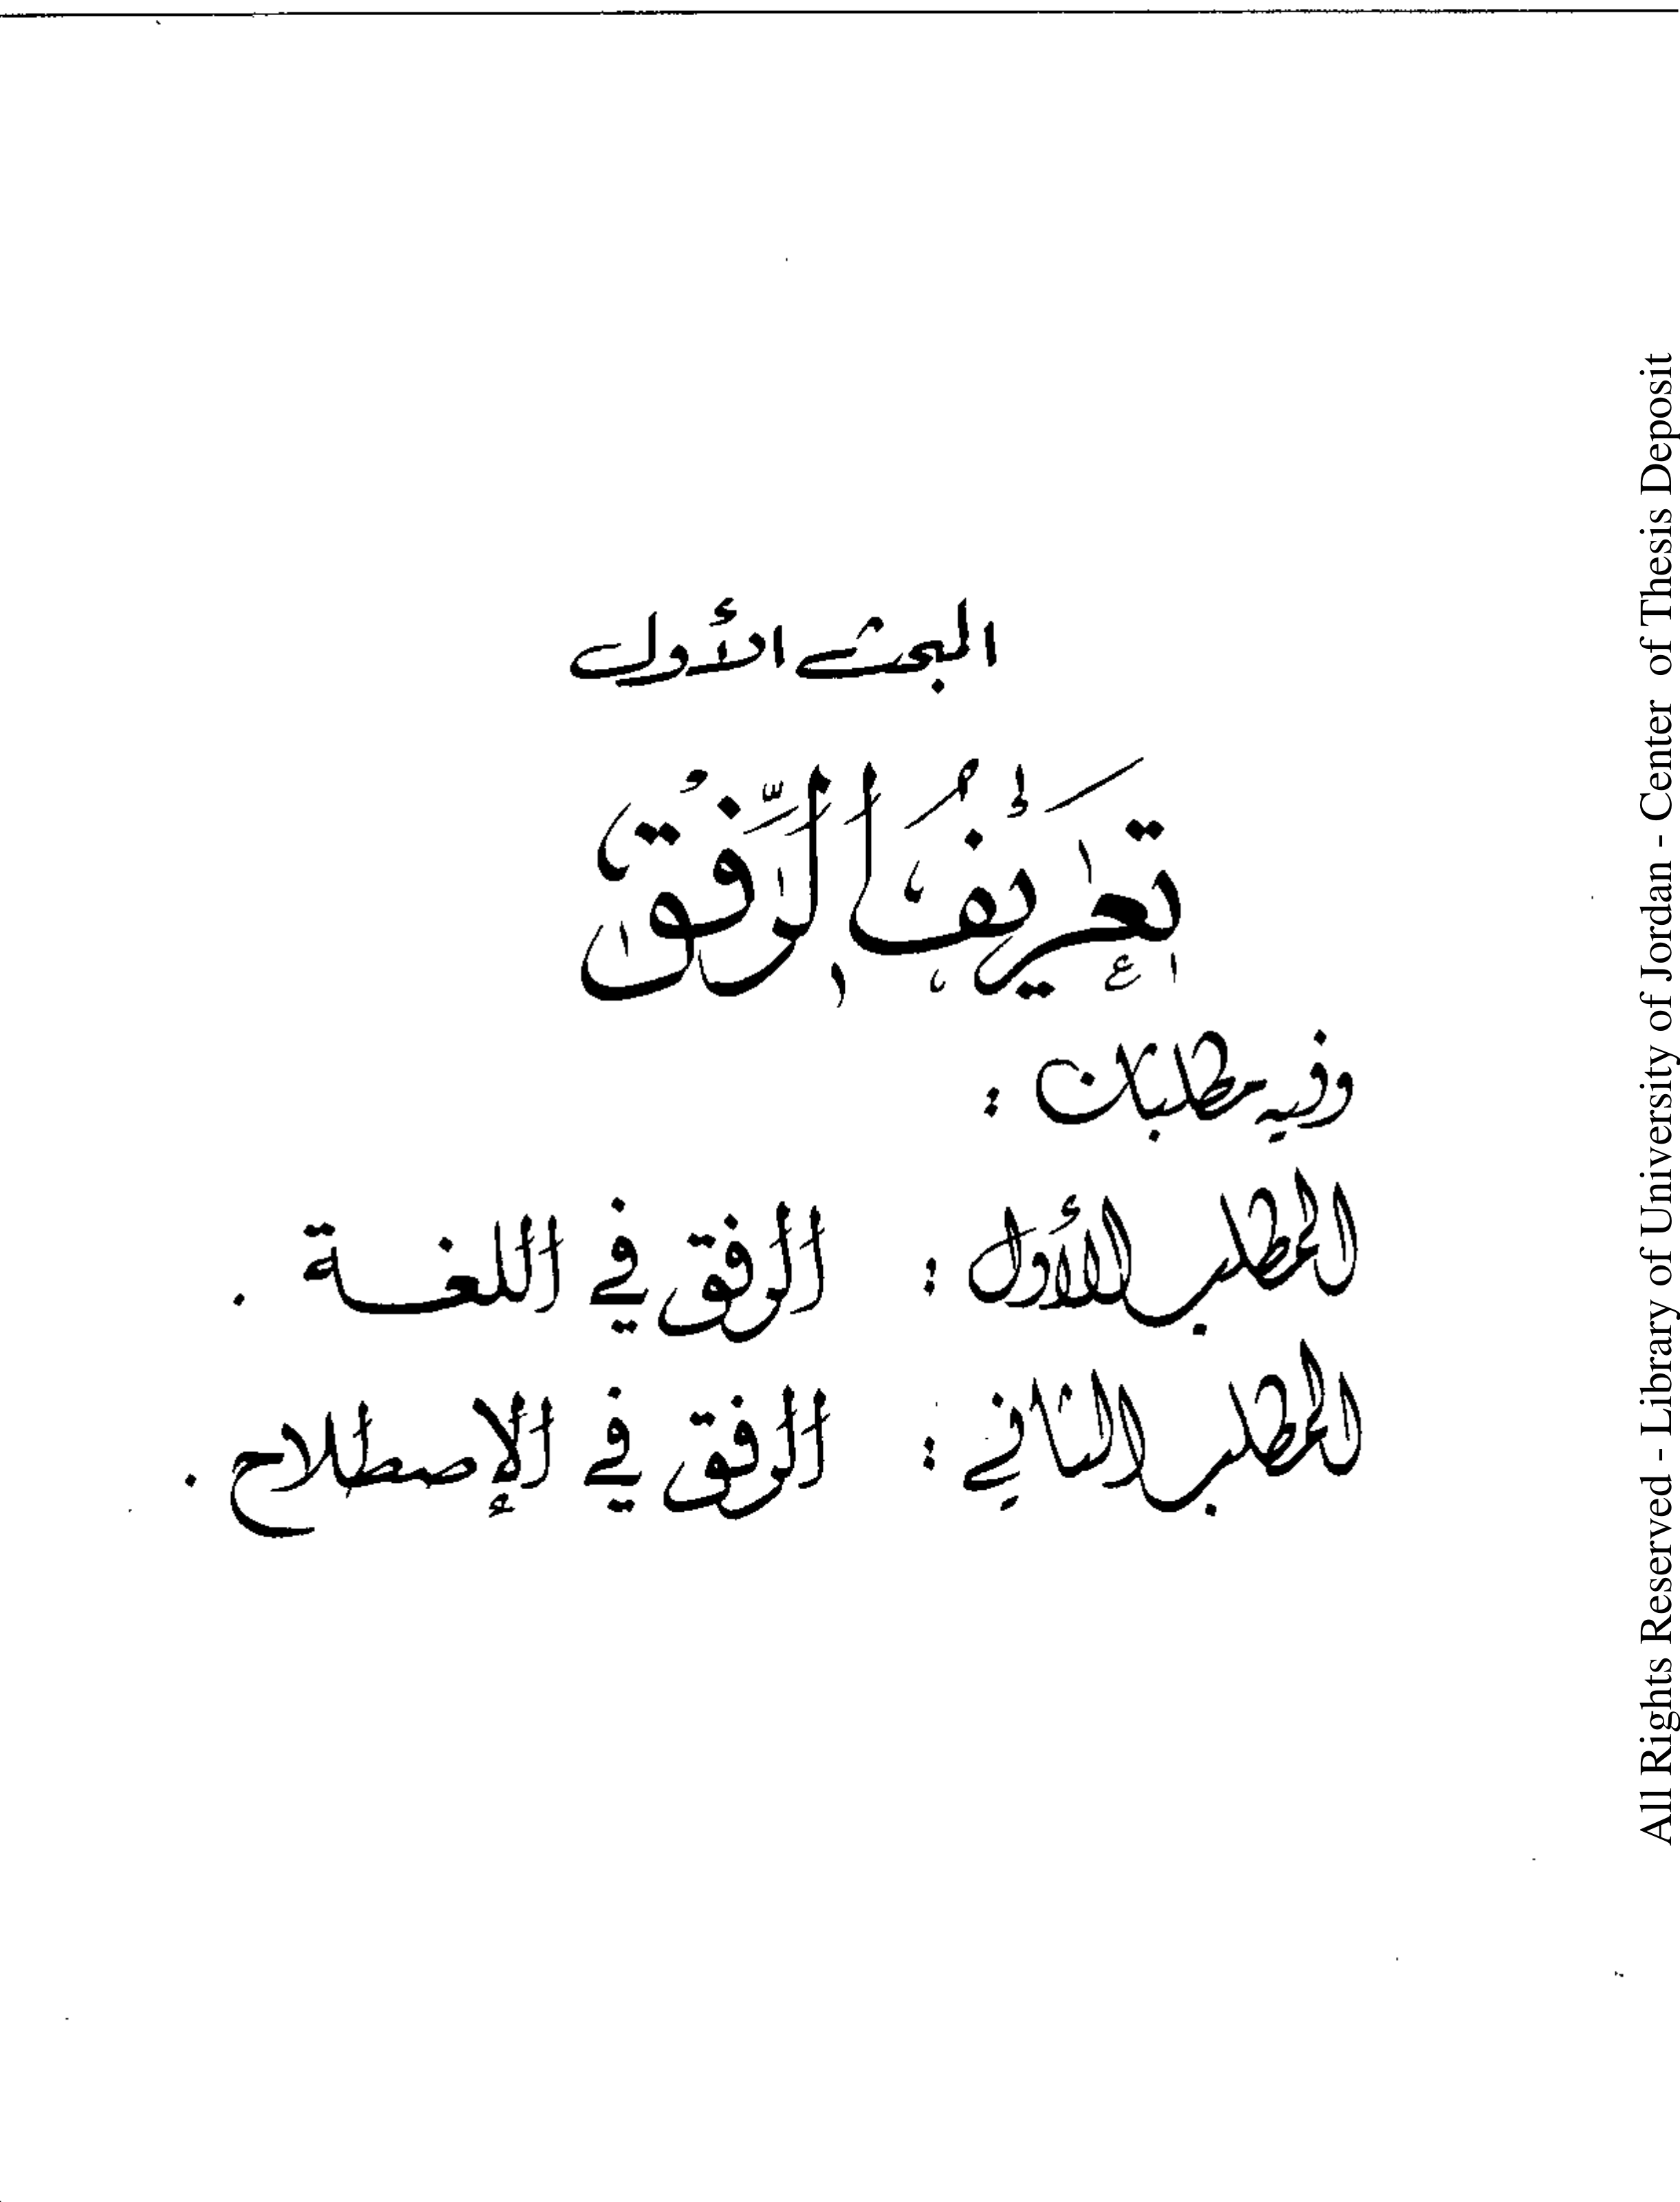 المبحث الأول
تعريف الرفق
وفيه مطلبان :
المطلب الأول : الرفق في اللغة .
المطلب الثاني : الرفق في الإصطلاح .
All Rights Reserved - Library of University of Jordan - Center of Thesis Deposit